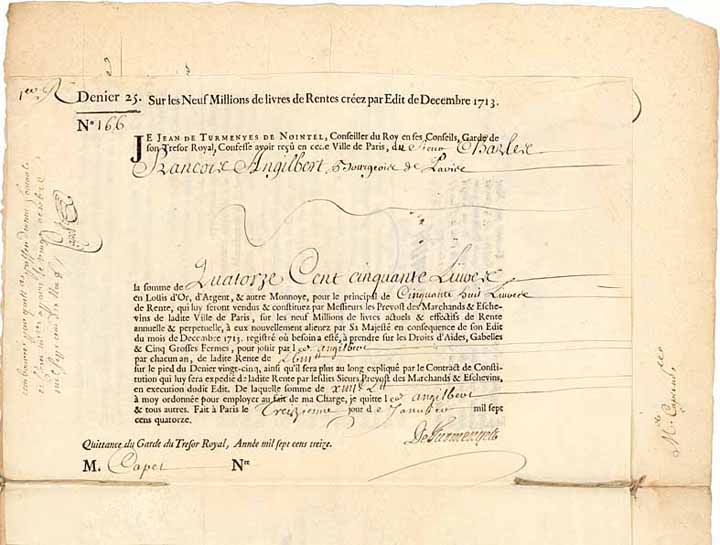 Denier 25. Sur les Neuf Millions de livres de Rentes créez par Edit de Decembre 1713.
N° 166
JE JEAN DE TURMENYES DE NOINTEL, Conseiller du Roy en ses Conseils, Garde de
son Tresor Royal, Confesse avoir reçu en cete Ville de Paris, du Sieur Charles
Francois Angilbert, Bourgeois de Paris
la somme de Quatorze Cent cinquante Livres
en Loüis d'Or, d'Argent, & autre Monnoye, pour le principal de Cinquante huit Livres
de Rente, qui luy seront vendus & constituez par Messieurs les Prevost des Marchands & Esche-
vins de ladite Ville de Paris, sur les neuf Millions de livres actuels & effectifs de Rente
annuelle & perpetuelle, à eux nouvellement alienez par Sa Majesté en consequence de son Edit
du mois de Decembre 1713. registré où besoin a esté, à prendre sur les Droits d'Aides, Gabelles
& Cinq Grosses Fermes, pour joüir par led. angilbert
par chacun an, de ladite Rente de
sur le pied du Denier vingt-cinq, ainsi qu'il sera plus au long expliqué par le Contract de Consti-
tution qui luy sera expedié de ladite Rente par lesdits Sieurs Prevost des Marchands & Eschevins,
en execution dudit Edit. De laquelle somme de
à moy ordonnée pour employer au fait de ma Charge, je quitte led. angilbert
& tous autres. Fait à Paris le Treizieme jour de Janvier mil sept
cens quatorze.
De Turmenyes
Quittance du Garde du Tresor Royal, Année mil sept cens treize.
M. Capet Nre